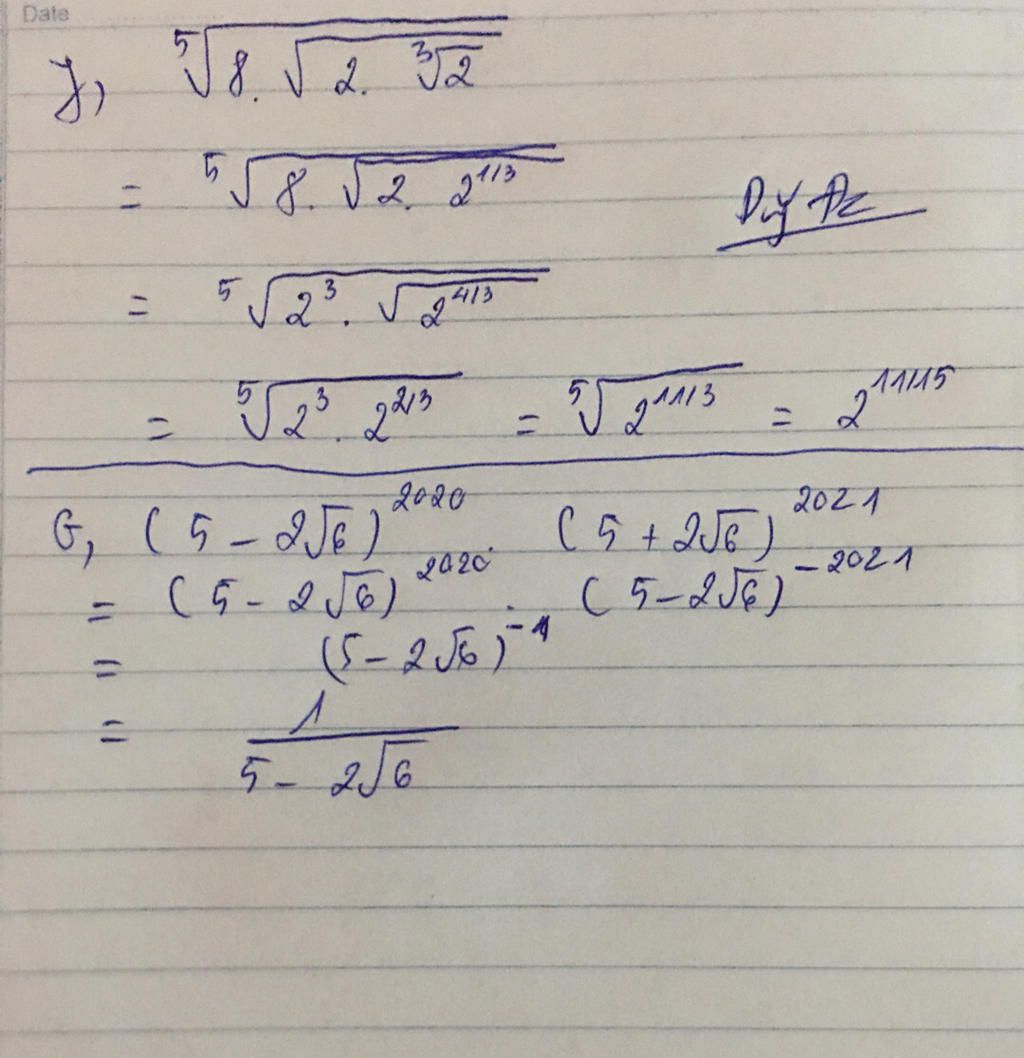 Date
f, ⁵√(8. √(2. ³√2))
= ⁵√(8. √(2. 2^1/3))
Duy Dz
= ⁵√(2³ . √(2^4/3))
= ⁵√(2³ . 2^2/3) = ⁵√(2^11/3) = 2^11/15
G, (5 - 2√6)^2020 . (5 + 2√6)^2021
= (5 - 2√6)^2020 . (5 - 2√6)^-2021
= (5 - 2√6)^-1
= 1
5 - 2√6